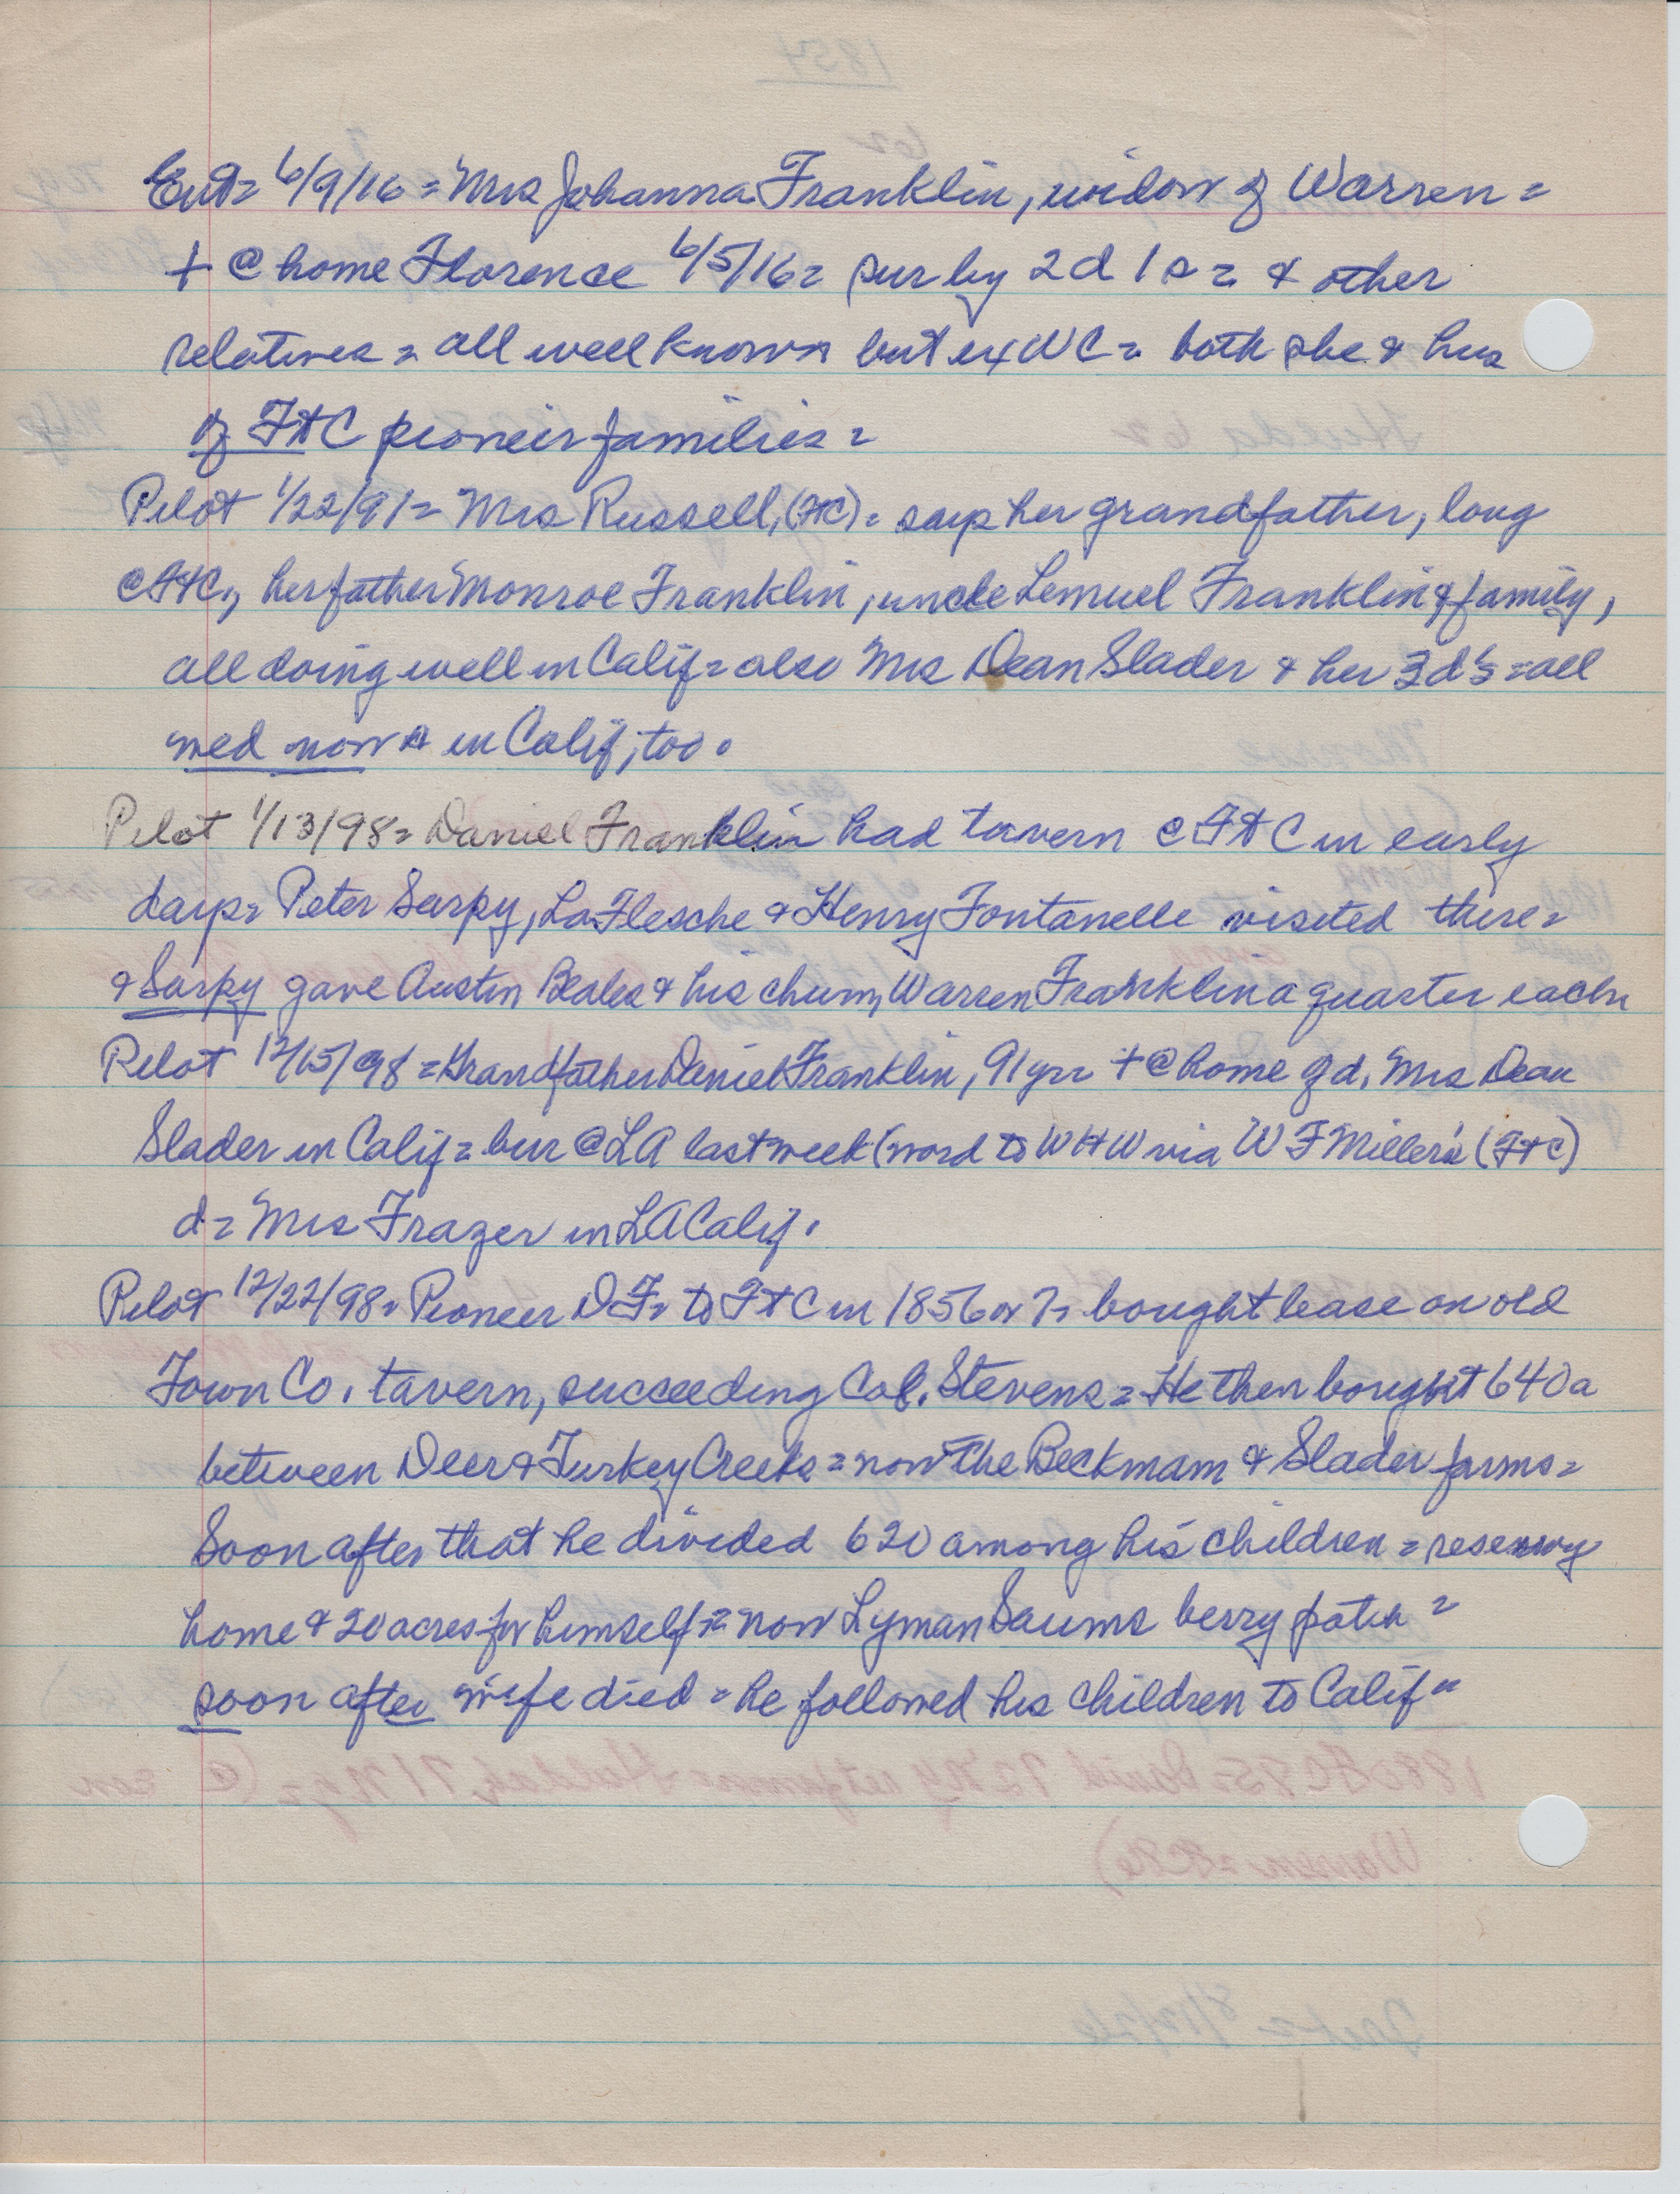 Ent= 6/9/16 = Mrs Johanna Franklin, widow of Warren =
+ @ home Florence 6/5/16 = sur by 2 d 1 s = & other
relatives = all well known but ex WC = both she & hus
of FtC pioneer families =
Pilot 1/22/91 = Mrs Russell, (FtC) = says her grandfather, long
@ FtC, her father Monroe Franklin, uncle Lemuel Franklin & family,
all doing well in Calif = also Mrs Dean Slader & her 3 d's = all
med now & in Calif, too.
Pilot 1/13/98 = Daniel Franklin had tavern @ FtC in early
days = Peter Sarpy, LaFlesche & Henry Fontanelle visited there =
& Sarpy gave Austin Beales & his chum, Warren Franklin a quarter each =
Pilot 12/15/98 = Grandfather Daniel Franklin, 91 yrs + @ home of d, Mrs Dean
Slader in Calif = bur @ LA last week (word to WHW via W F Miller's (FtC)
d = Mrs Frazer in LA Calif.
Pilot 12/22/98 = Pioneer DF = to FtC in 1856 or 7 = bought lease on old
Town Co. tavern, succeeding Col. Stevens = He then bought 640 a
between Deer & Turkey Creeks = now the Beckman & Slader farms =
Soon after that he divided 620 among his children = reserving
home & 20 acres for himself = now Lyman Saums berry patch =
soon after wife died = he followed his children to Calif =